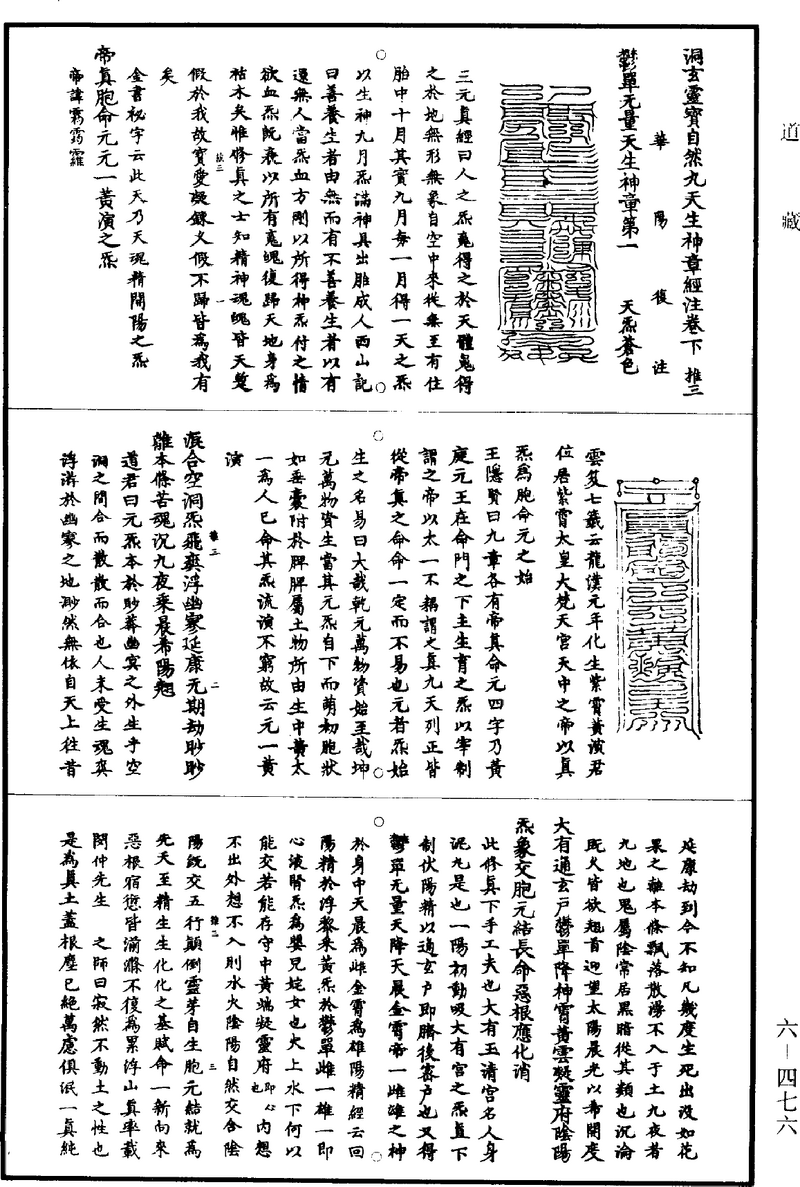 道藏
洞玄靈寶自然九天生神章經注卷下 推三
華陽復注
鬱單无量天生神章第一 天炁蒼色
三元真經曰人之炁䰟得之於天體䰟得
之於地無形無象自空中來從無王有住
胎中十月其實九月每一月得一天之炁
以生神九月炁滿神具出胎成人西山記
曰善養生者由無而有不善養生者以有
還無人當炁血方剛以所得神炁付之情
欲血炁既衰以所有䰟魄復歸天地身為
枯木矣惟修真之士知精神魂魄皆天蹔
假於我故寶愛凝鍊久假不歸皆為我有
矣
金書秘字云此天乃天魂精閒陽之炁
帝真胞命元元一黃演之炁
帝諱霐霒羅
雲笈七籤云龍漢元年化生紫霄黃演君
位居紫霄太皇大梵天宮天中之帝以真
炁為胞命元之始
王隱賢曰九章各有帝真命元四字乃黃
庭元王在命門之下主生育之炁以宰制
謂之帝以太一不耦謂之真九天列正皆
從帝真之命命一定而不易也元者炁始
生之名易曰大哉乾元萬物資始至哉坤
元萬物資生當其元炁自下而萌初胞狀
如垂囊附於脾脾屬土物所由生中黃太
一為人已命其炁流演不窮故云元一黃
演
混合空洞炁飛爽浮幽寥延康无期劫眇眇
離本條苦魂沉九夜乘晨希陽翹
道君曰元炁本於眇莽幽冥之外生乎空
洞之間合而散散而合也人未受生魂爽
浮游於幽寥之地眇然無依自天上往昔
延康劫到今不知凡幾度生死出沒如花
果之離本條飄落散漫不入于土九夜者
九地也鬼屬陰常居黑暗從其類也沉淪
既久皆欲翹首迎望太陽晨光以希開度
大有通玄戶鬱單降神霄黃雲凝靈府陰陽
炁象交胞元結長命惡根應化消
此修真下手工夫也大有玉清宮名人身
泥九是也一陽初動吸大有宮之炁直下
制伏陽精以通玄戶即臍後密戶也又得
鬱單无量天降天晨金霄帝一雌雄之神
於身中天晨為雌金霄為雄陽精經云回
陽精於浮黎来黃炁於鬱單雌一雄一即
心液腎炁為嬰兒姹女也火上水下何以
能交若能存守中黃端凝靈府即心也內想
不出外想不入則水火陰陽自然交合陰
陽既交五行顛倒靈芽自生胞元結就為
先天至精生生化化之基賦命一新向來
惡根宿愆皆湔滌不復為累浮山真率載
閔仲先生 之師曰寂然不動土之性也
是為真土蓋根塵已絕萬慮俱泯一真純
六—四七六